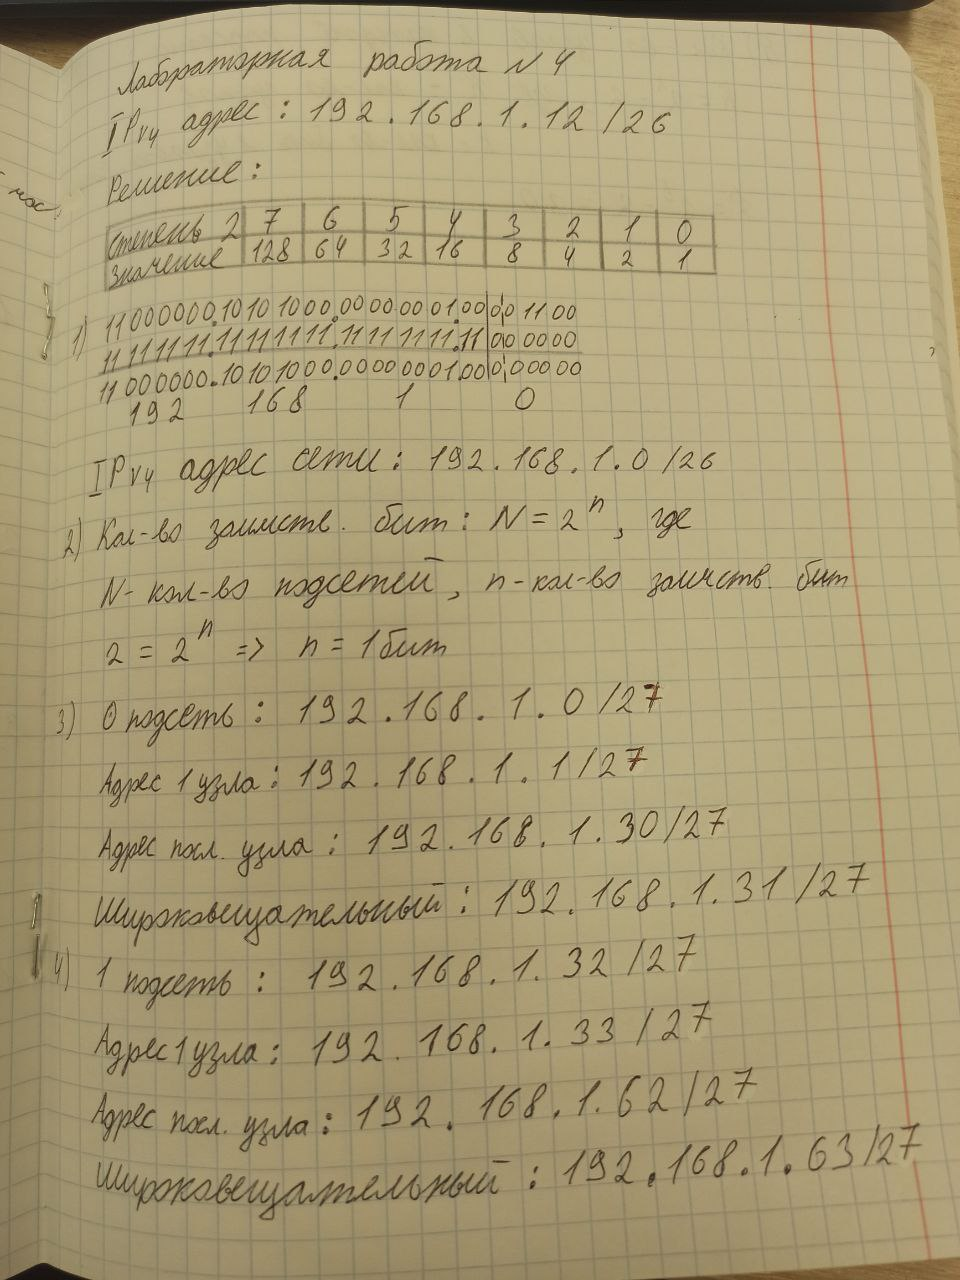 Лабораторная работа N 4
IPv4 адрес : 192.168.1.12 /26
Решение :
степень 2 7 6 5 4 3 2 1 0
значение 128 64 32 16 8 4 2 1
1) 11000000.10101000.00000001.00001100
11111111.11111111.11111111.11000000
11000000.10101000.00000001.00000000
192 168 1 0
IPv4 адрес сети : 192.168.1.0 /26
2) Кол-во заимств. бит : N = 2ⁿ, где
N- кол-во подсетей, n-кол-во заимств. бит
2 = 2ⁿ => n = 1 бит
3) 0 подсеть : 192.168.1.0 /27
Адрес 1 узла : 192.168.1.1/27
Адрес посл. узла : 192.168.1.30/27
Широковещательный : 192.168.1.31 /27
4) 1 подсеть : 192.168.1.32 /27
Адрес 1 узла : 192.168.1.33 /27
Адрес посл. узла : 192.168.1.62/27
Широковещательный : 192.168.1.63/27